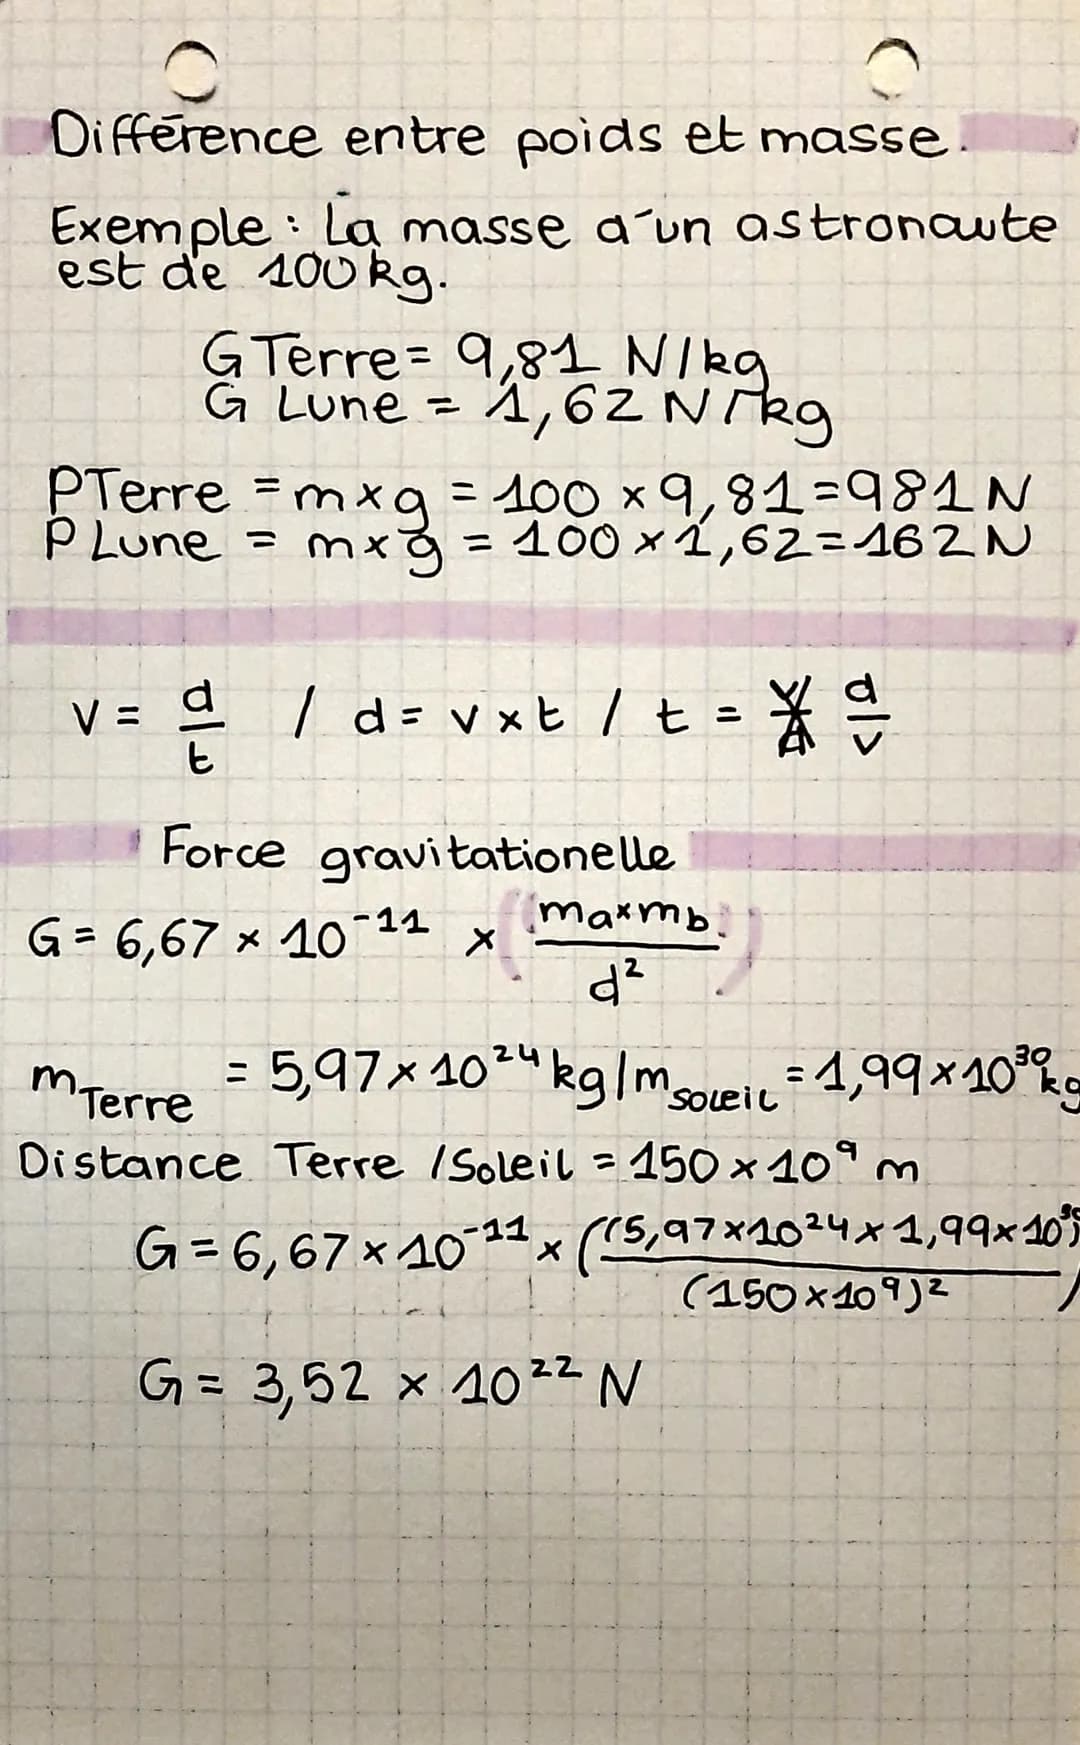 Différence entre poids et masse.
Exemple : La masse d'un astronaute
est de 100 kg.
G Terre = 9,81 N/kg
G Lune = 1,62 N/kg
P Terre = m x g = 100 x 9,81 = 981 N
P Lune = m x g = 100 x 1,62 = 162 N
v = d/t / d = v x t / t = d/v
Force gravitationelle
G = 6,67 x 10⁻¹¹ x ((ma x mb)/d²)
mTerre = 5,97 x 10²⁴ kg / mSOLEIL = 1,99 x 10³⁰ kg
Distance Terre / Soleil = 150 x 10⁹ m
G = 6,67 x 10⁻¹¹ x ((5,97 x 10²⁴ x 1,99 x 10³⁰)/(150 x 10⁹)²)
G = 3,52 x 10²² N